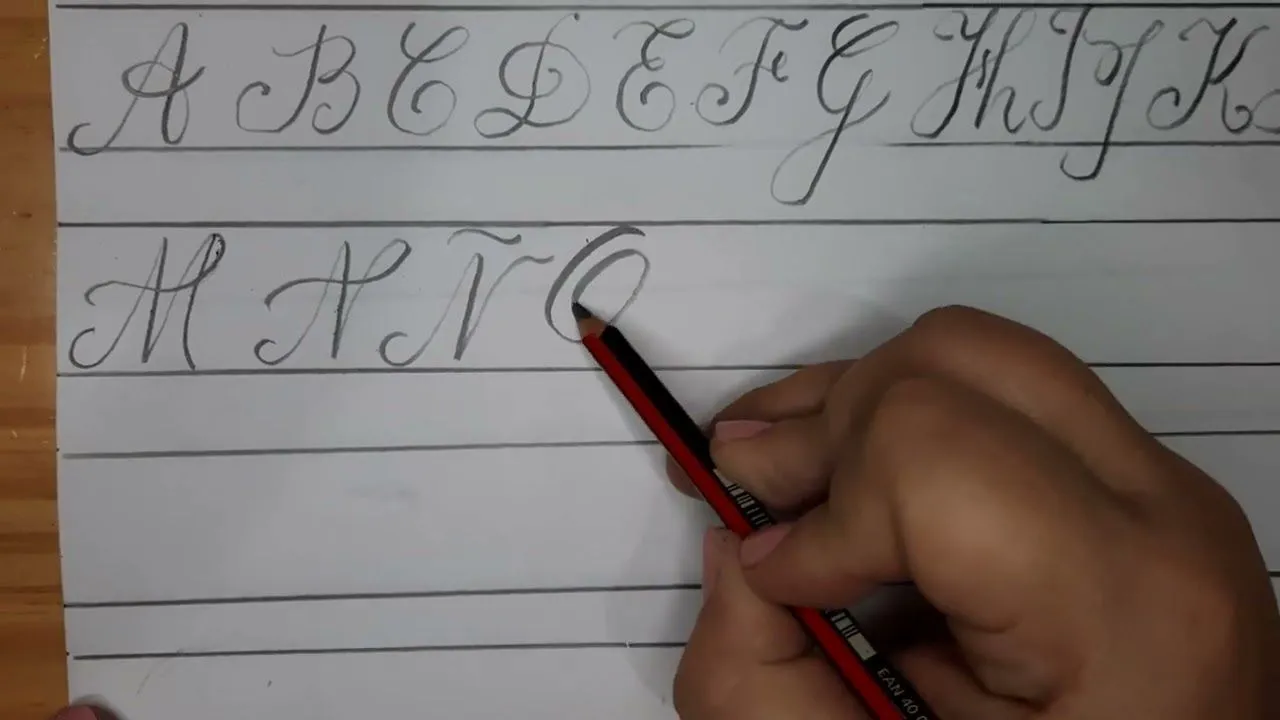 A B C D E F G H I J K
M N Ñ O
EAN 40 0